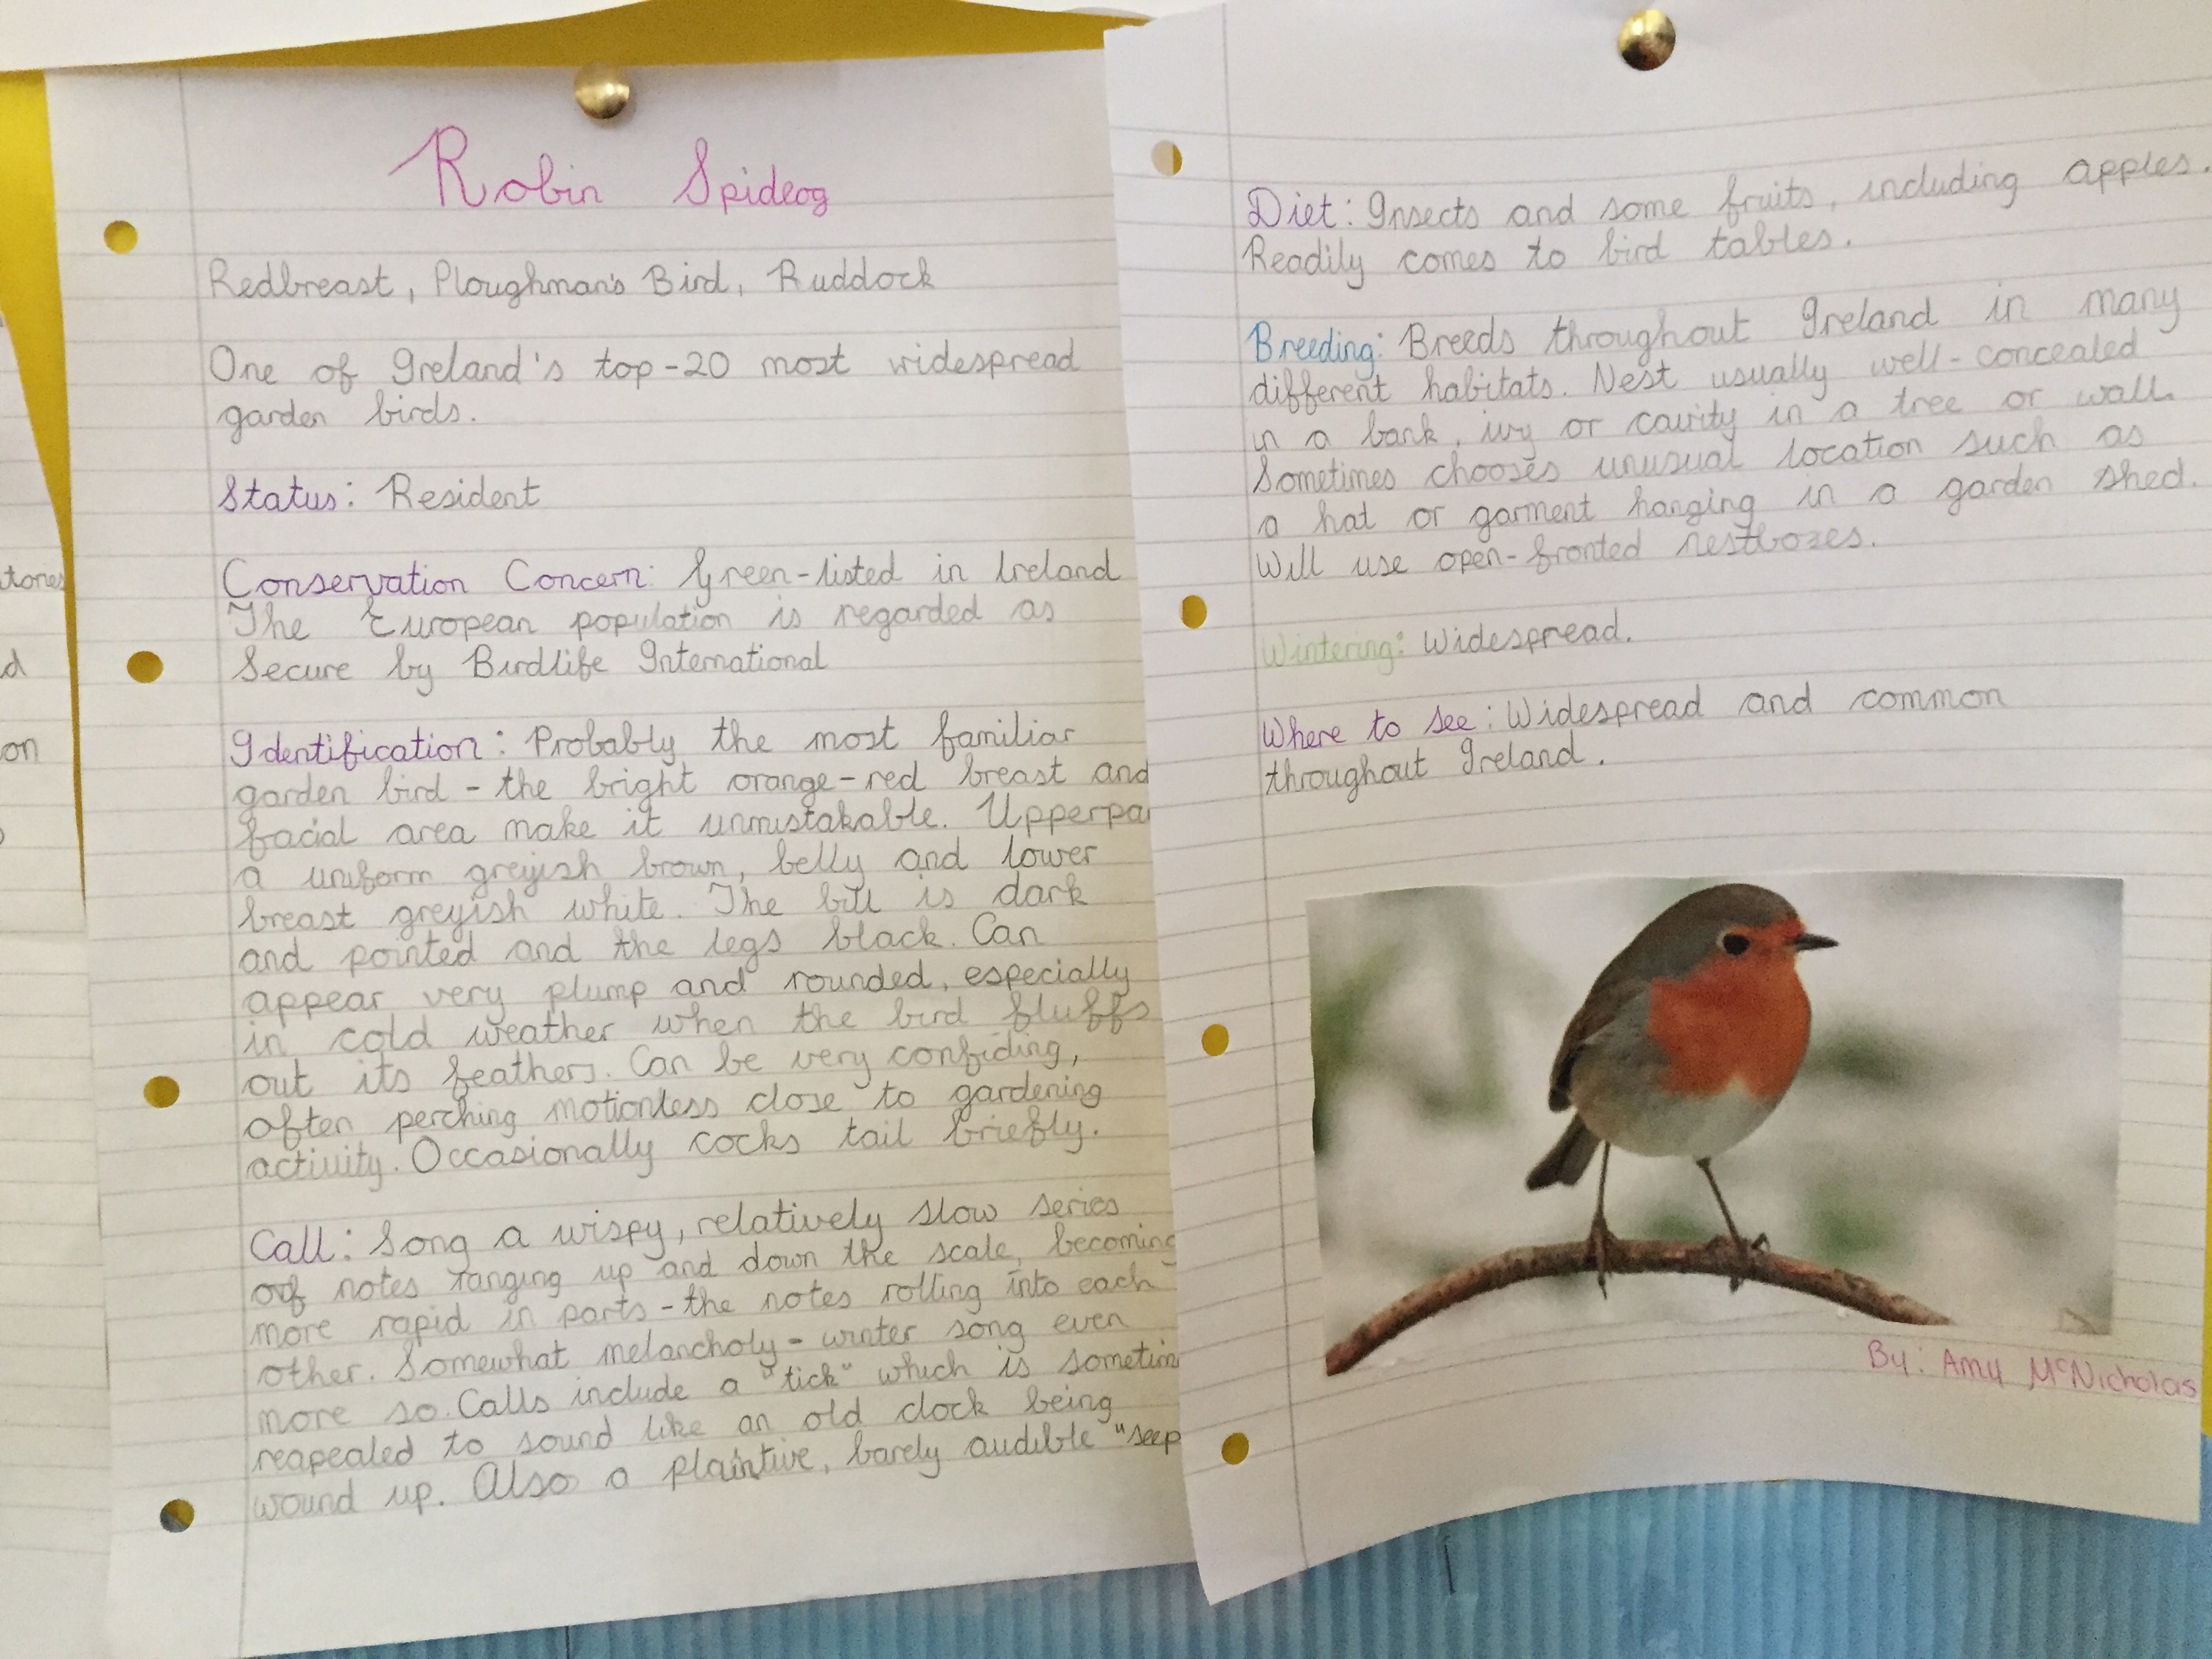 Robin Spideog
Redbreast, Ploughman's Bird, Ruddock
One of Ireland's top-20 most widespread
garden birds.
Status: Resident
Conservation Concern: Green-listed in Ireland
The European population is regarded as
Secure by Birdlife International
Identification: Probably the most familiar
garden bird - the bright orange-red breast and
facial area make it unmistakable. Upperpa
a uniform greyish brown, belly and lower
breast greyish white. The bill is dark
and pointed and the legs black. Can
appear very plump and rounded, especially
in cold weather when the bird fluffs
out its feathers. Can be very confiding,
often perching motionless close to gardening
activity. Occasionally cocks tail briefly.
Call: Song a wispy, relatively slow series
of notes ranging up and down the scale, becoming
more rapid in parts - the notes rolling into each
other. Somewhat melancholy - winter song even
more so. Calls include a "tick" which is sometim
reapealed to sound like an old clock being
wound up. Also a plaintive, barely audible "seep
Diet: Insects and some fruits, including apples.
Readily comes to bird tables.
Breeding: Breeds throughout Ireland in many
different habitats. Nest usually well-concealed
in a bank, ivy or cavity in a tree or wall.
Sometimes chooses unusual location such as
a hat or garment hanging in a garden shed.
Will use open-fronted nestboxes.
Wintering: Widespread.
Where to see: Widespread and common
throughout Ireland.
By: Amy McNicholas
tones
d
on